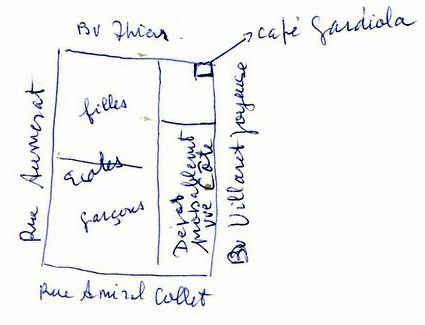 Bv Thiers.
café Gardiola
Rue Aumerat
filles
Ecoles
garçons
Départ
probablement
vue Côte
Bv Villaret Joyeuse
Rue Amiral Collet